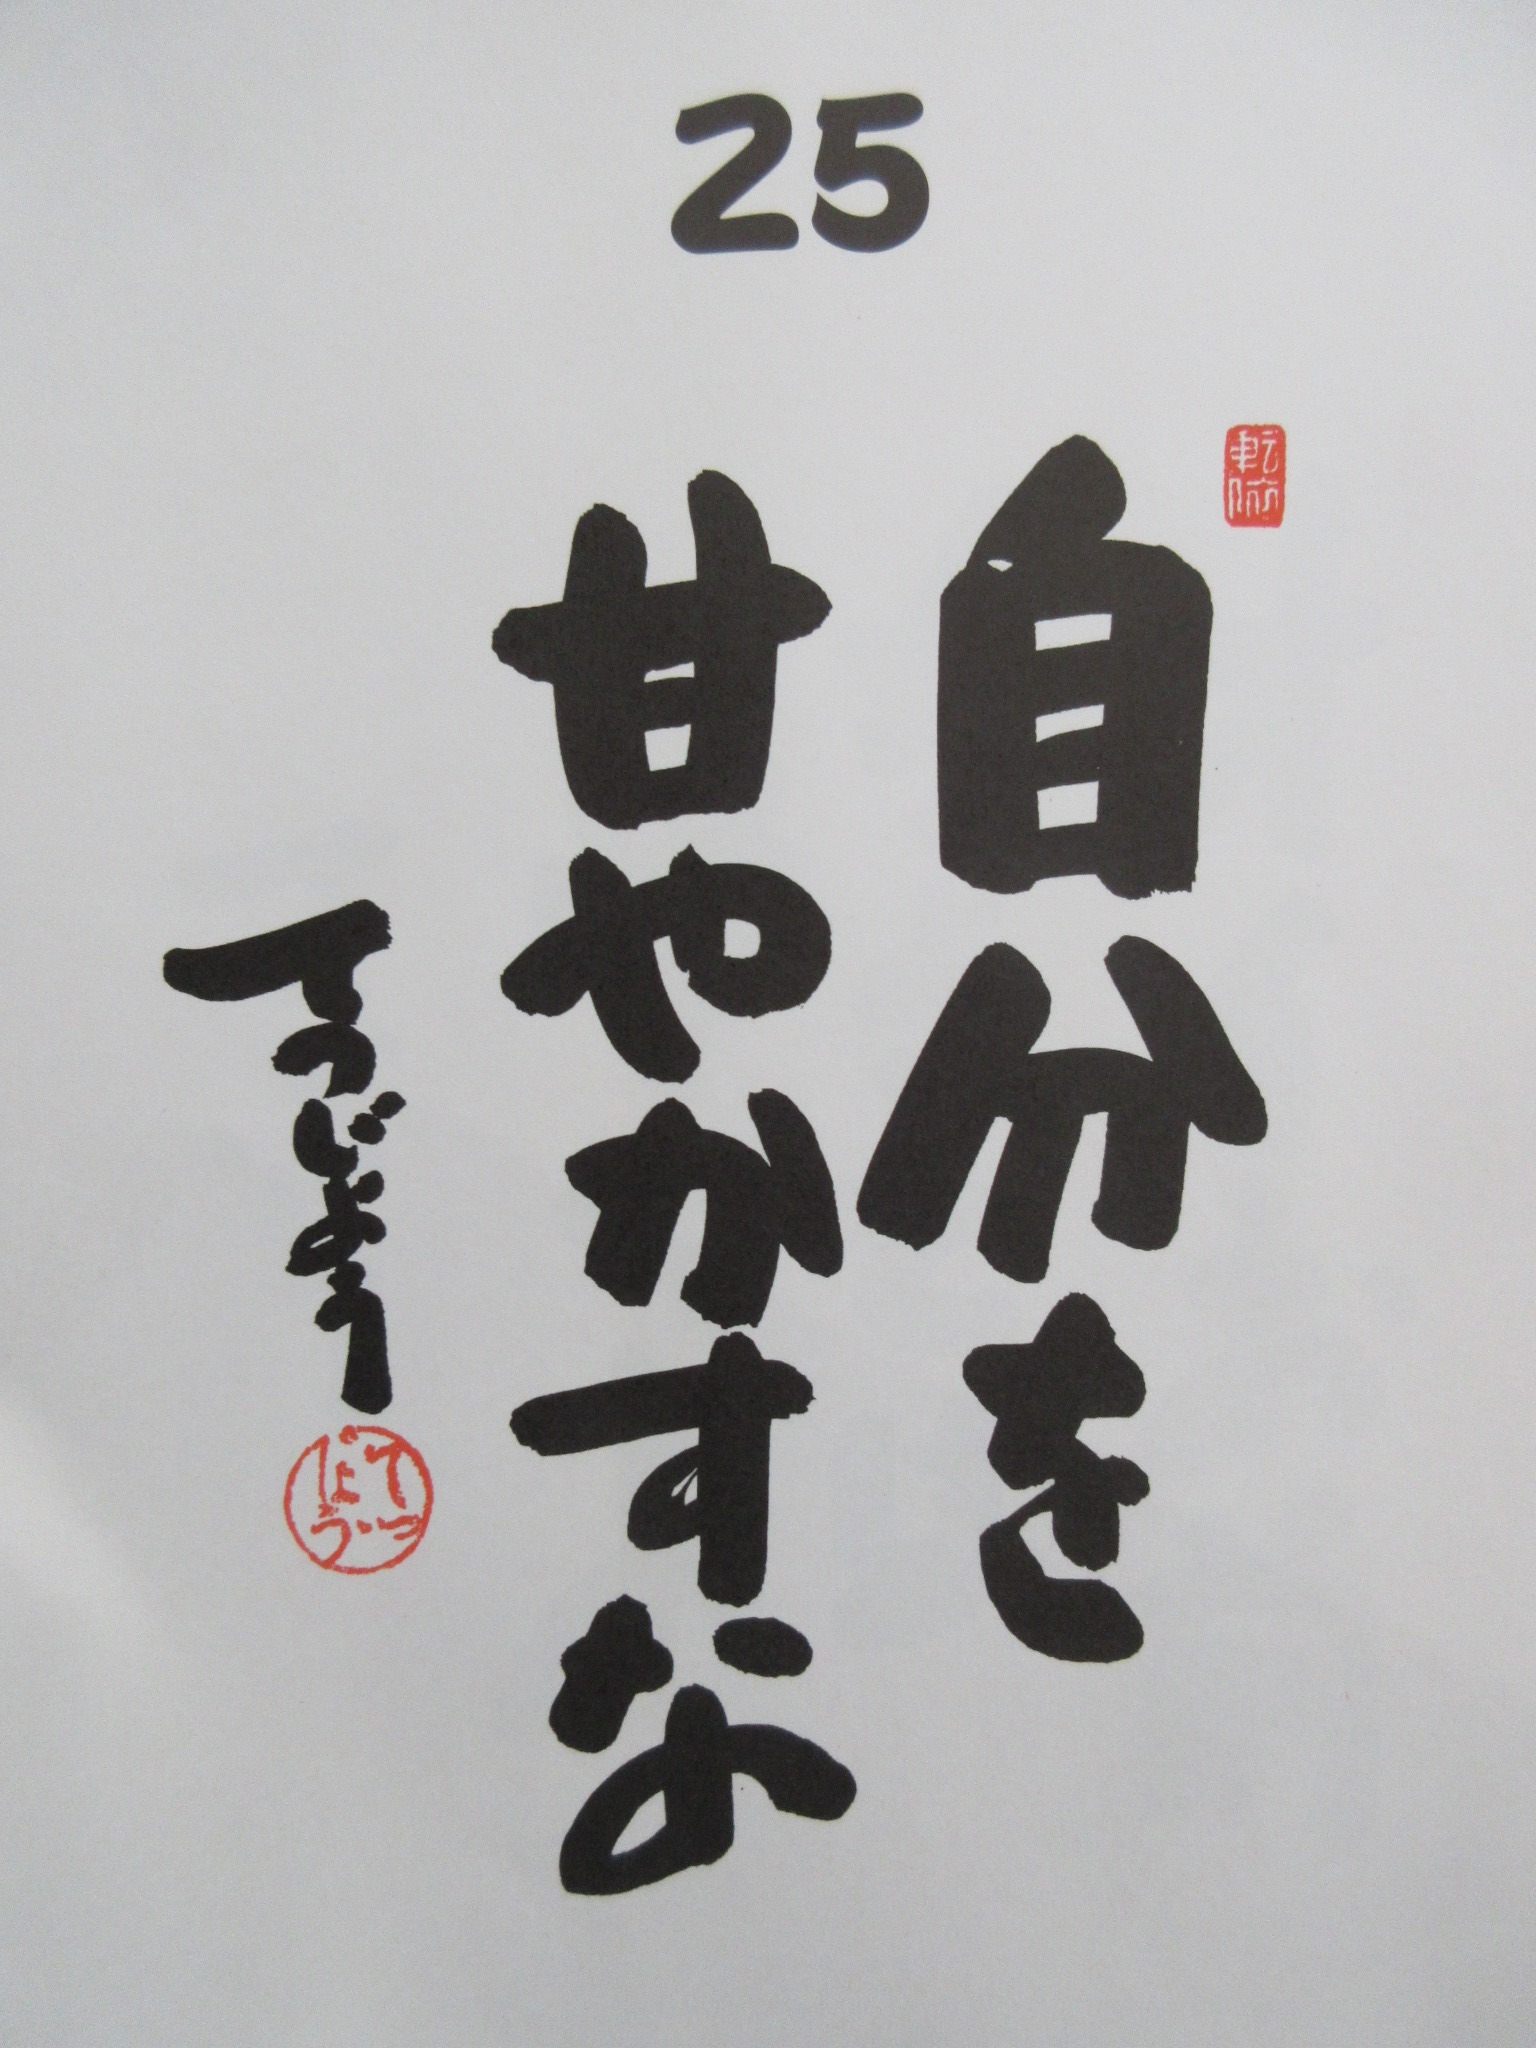 25
自分を
甘やかすな
てつじょう
てつじょう